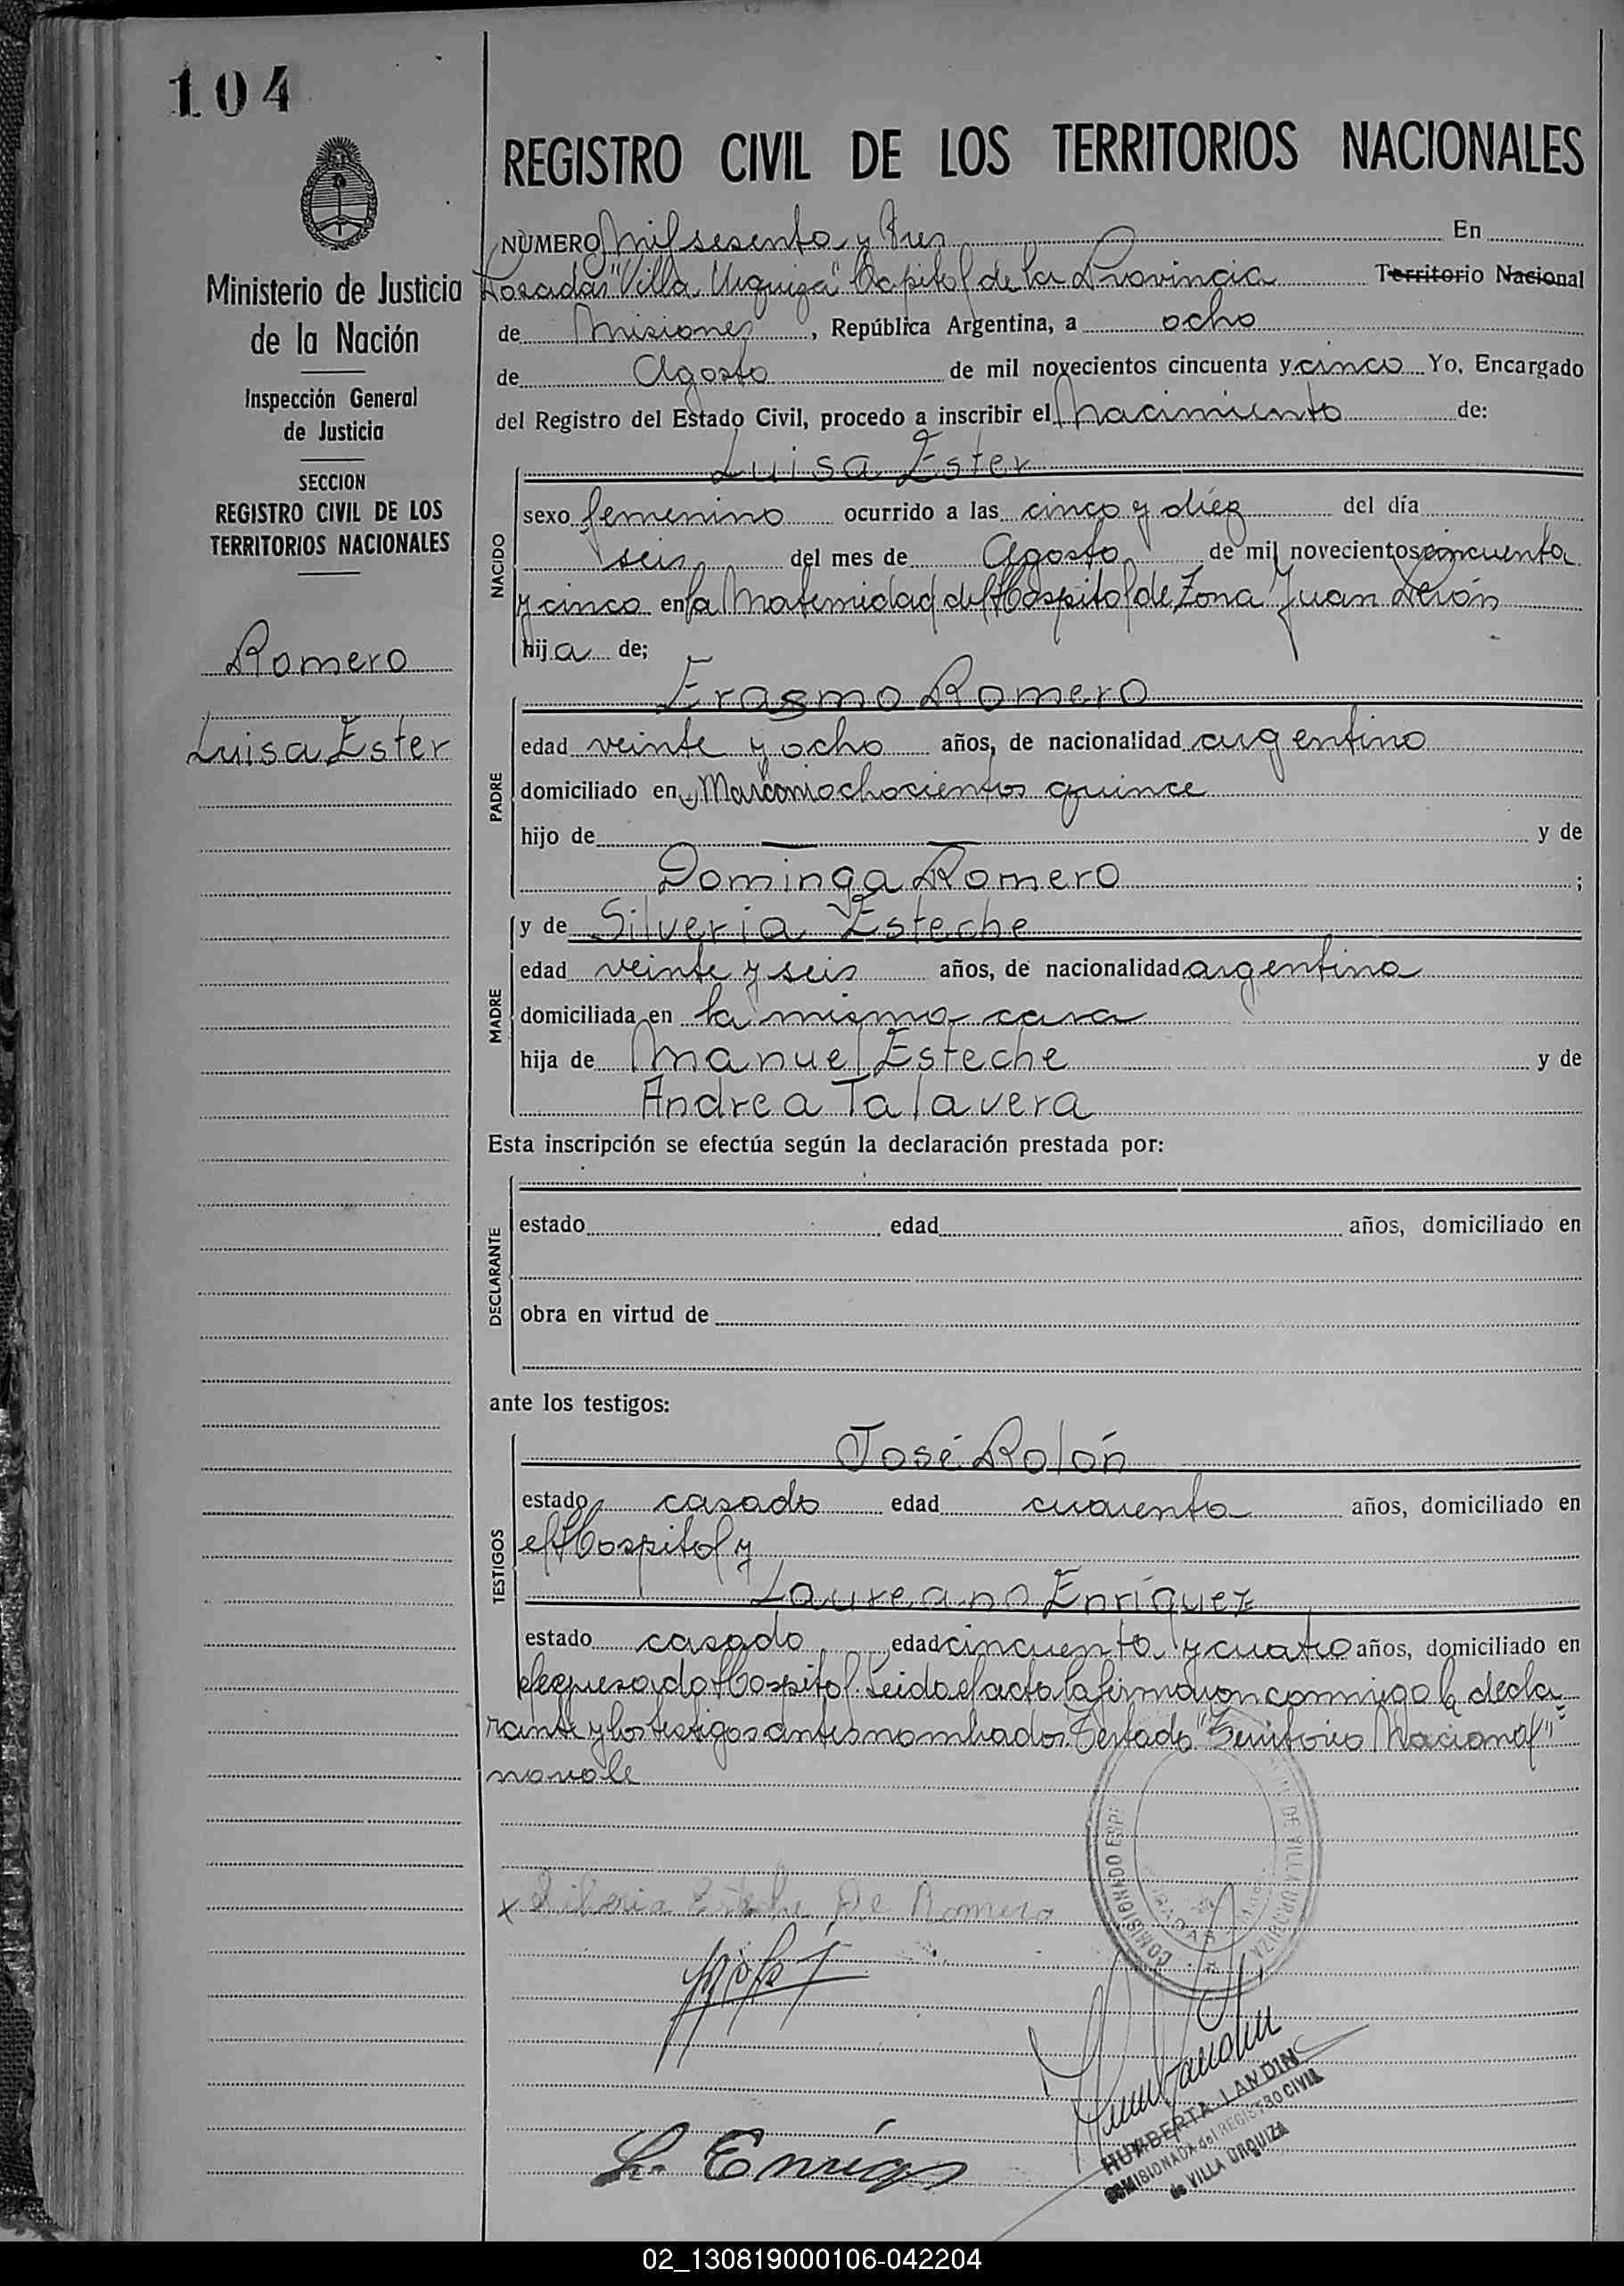 104
Ministerio de Justicia
de la Nación
Inspección General
de Justicia
SECCION
REGISTRO CIVIL DE LOS
TERRITORIOS NACIONALES
Romero
Luisa Ester
REGISTRO CIVIL DE LOS TERRITORIOS NACIONALES
NÚMERO Mil sesenta y tres En
Posadas "Villa Urquiza" Capital de la Provincia Territorio Nacional
de Misiones, República Argentina, a ocho
de Agosto de mil novecientos cincuenta y cinco Yo, Encargado
del Registro del Estado Civil, procedo a inscribir el nacimiento de:
NACIDO
Luisa Ester
sexo femenino ocurrido a las cinco y diez del día
seis del mes de Agosto de mil novecientos cincuenta
y cinco en la Maternidad del Hospital de Zona Juan Perón
hija de;
PADRE
Erasmo Romero
edad veinte y ocho años, de nacionalidad argentino
domiciliado en Marconi ochocientos quince
hijo de — — y de
Dominga Romero ;
MADRE
y de Silveria Esteche
edad veinte y seis años, de nacionalidad argentina
domiciliada en la misma casa
hija de Manuel Esteche y de
Andrea Talavera
Esta inscripción se efectúa según la declaración prestada por:
DECLARANTE
estado edad años, domiciliado en
obra en virtud de
ante los testigos:
TESTIGOS
José Rolón
estado casado edad cuarenta años, domiciliado en
el Hospital y
Laureano Enríquez
estado casado edad cincuenta y cuatro años, domiciliado en
el expresado Hospital. Leida el acta la firmaron conmigo la decla=
rante y los testigos antes nombrados. Testado "Territorio Nacional"
no vale
COMISIONADO ESPE DE VILLA URQUIZA
x Silberia Esteche De Romero
L. Enriqz
HUMBERTA LANDIN
COMISIONADA del REGISTRO CIVIL
de VILLA URQUIZA
02_130819000106-042204